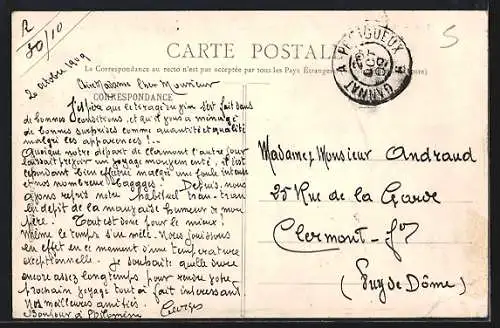 R
30/10
CARTE POSTALE
La Correspondance au recto n'est pas acceptée par tous les Pays Étrangers
GANNAT A PÉRIGUEUX
OCT
09
5
2 octobre 1909
Cher Monsieur
CORRESPONDANCE
J'espère que le tirage du vin s'est fait dans
de bonnes conditions, et qu'il vous a ménagé
de bonnes surprises comme quantité et qualité
malgré les apparences !..
Quoique notre départ de Clermont l'autre jour
laissait prévoir un voyage mouvementé, il s'est
cependant bien effectué malgré une foule intense
et nos nombreux bagages. Depuis, nous
avons repris notre habituel tran-tran
en dépit de la mauvaise humeur de mon
père. Tout est donc pour le mieux.
Même le temps s'en mêle. Nous jouissons
en effet en ce moment d'une température
exceptionnelle. Je souhaite qu'elle dure
encore assez longtemps pour rendre votre
prochain voyage tout à fait intéressant
Nos meilleures amitiés.
Georges
Bonjour à Philomène
Madame & Monsieur Andraud
25 Rue de la Garde
Clermont-Fd
(Puy de Dôme)